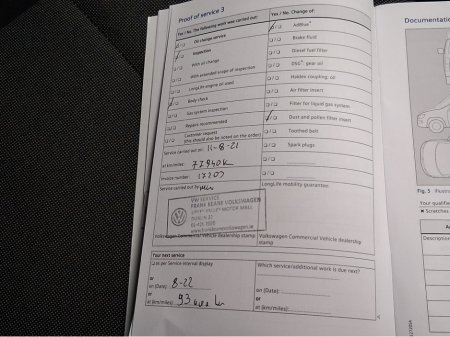 Proof of service 3
Yes / No. The following work was carried out:
Oil change service
Inspection
With oil change
With extended scope of inspection
LongLife engine oil used
Body check
Gas system inspection
Repairs recommended
Customer request
(this should also be noted on the order)
Service carried out on: 11-8-21
at km/miles:
Invoice number: 17203
Service carried out by
VW SERVICE
FRANK KEANE VOLKSWAGEN
LIFFEY VALLEY MOTOR MALL
Volkswagen Commercial Vehicle dealership
stamp
Yes / No. Change of:
AdBlue®
Brake fluid
Diesel fuel filter
DSG®: gear oil
Haldex coupling: oil
Air filter insert
Filter for liquid gas system
Dust and pollen filter insert
Toothed belt
Spark plugs
LongLife mobility guarantee:
Volkswagen Commercial Vehicle dealership
stamp
Your next service
as per Service interval display
or
on (Date): 8-22
or
at (km/miles): 93
Which service/additional work is due next?
on (Date):
or
at (km/miles):
Documentatio
Fig. 5
Your qualifie
Scratches
Description